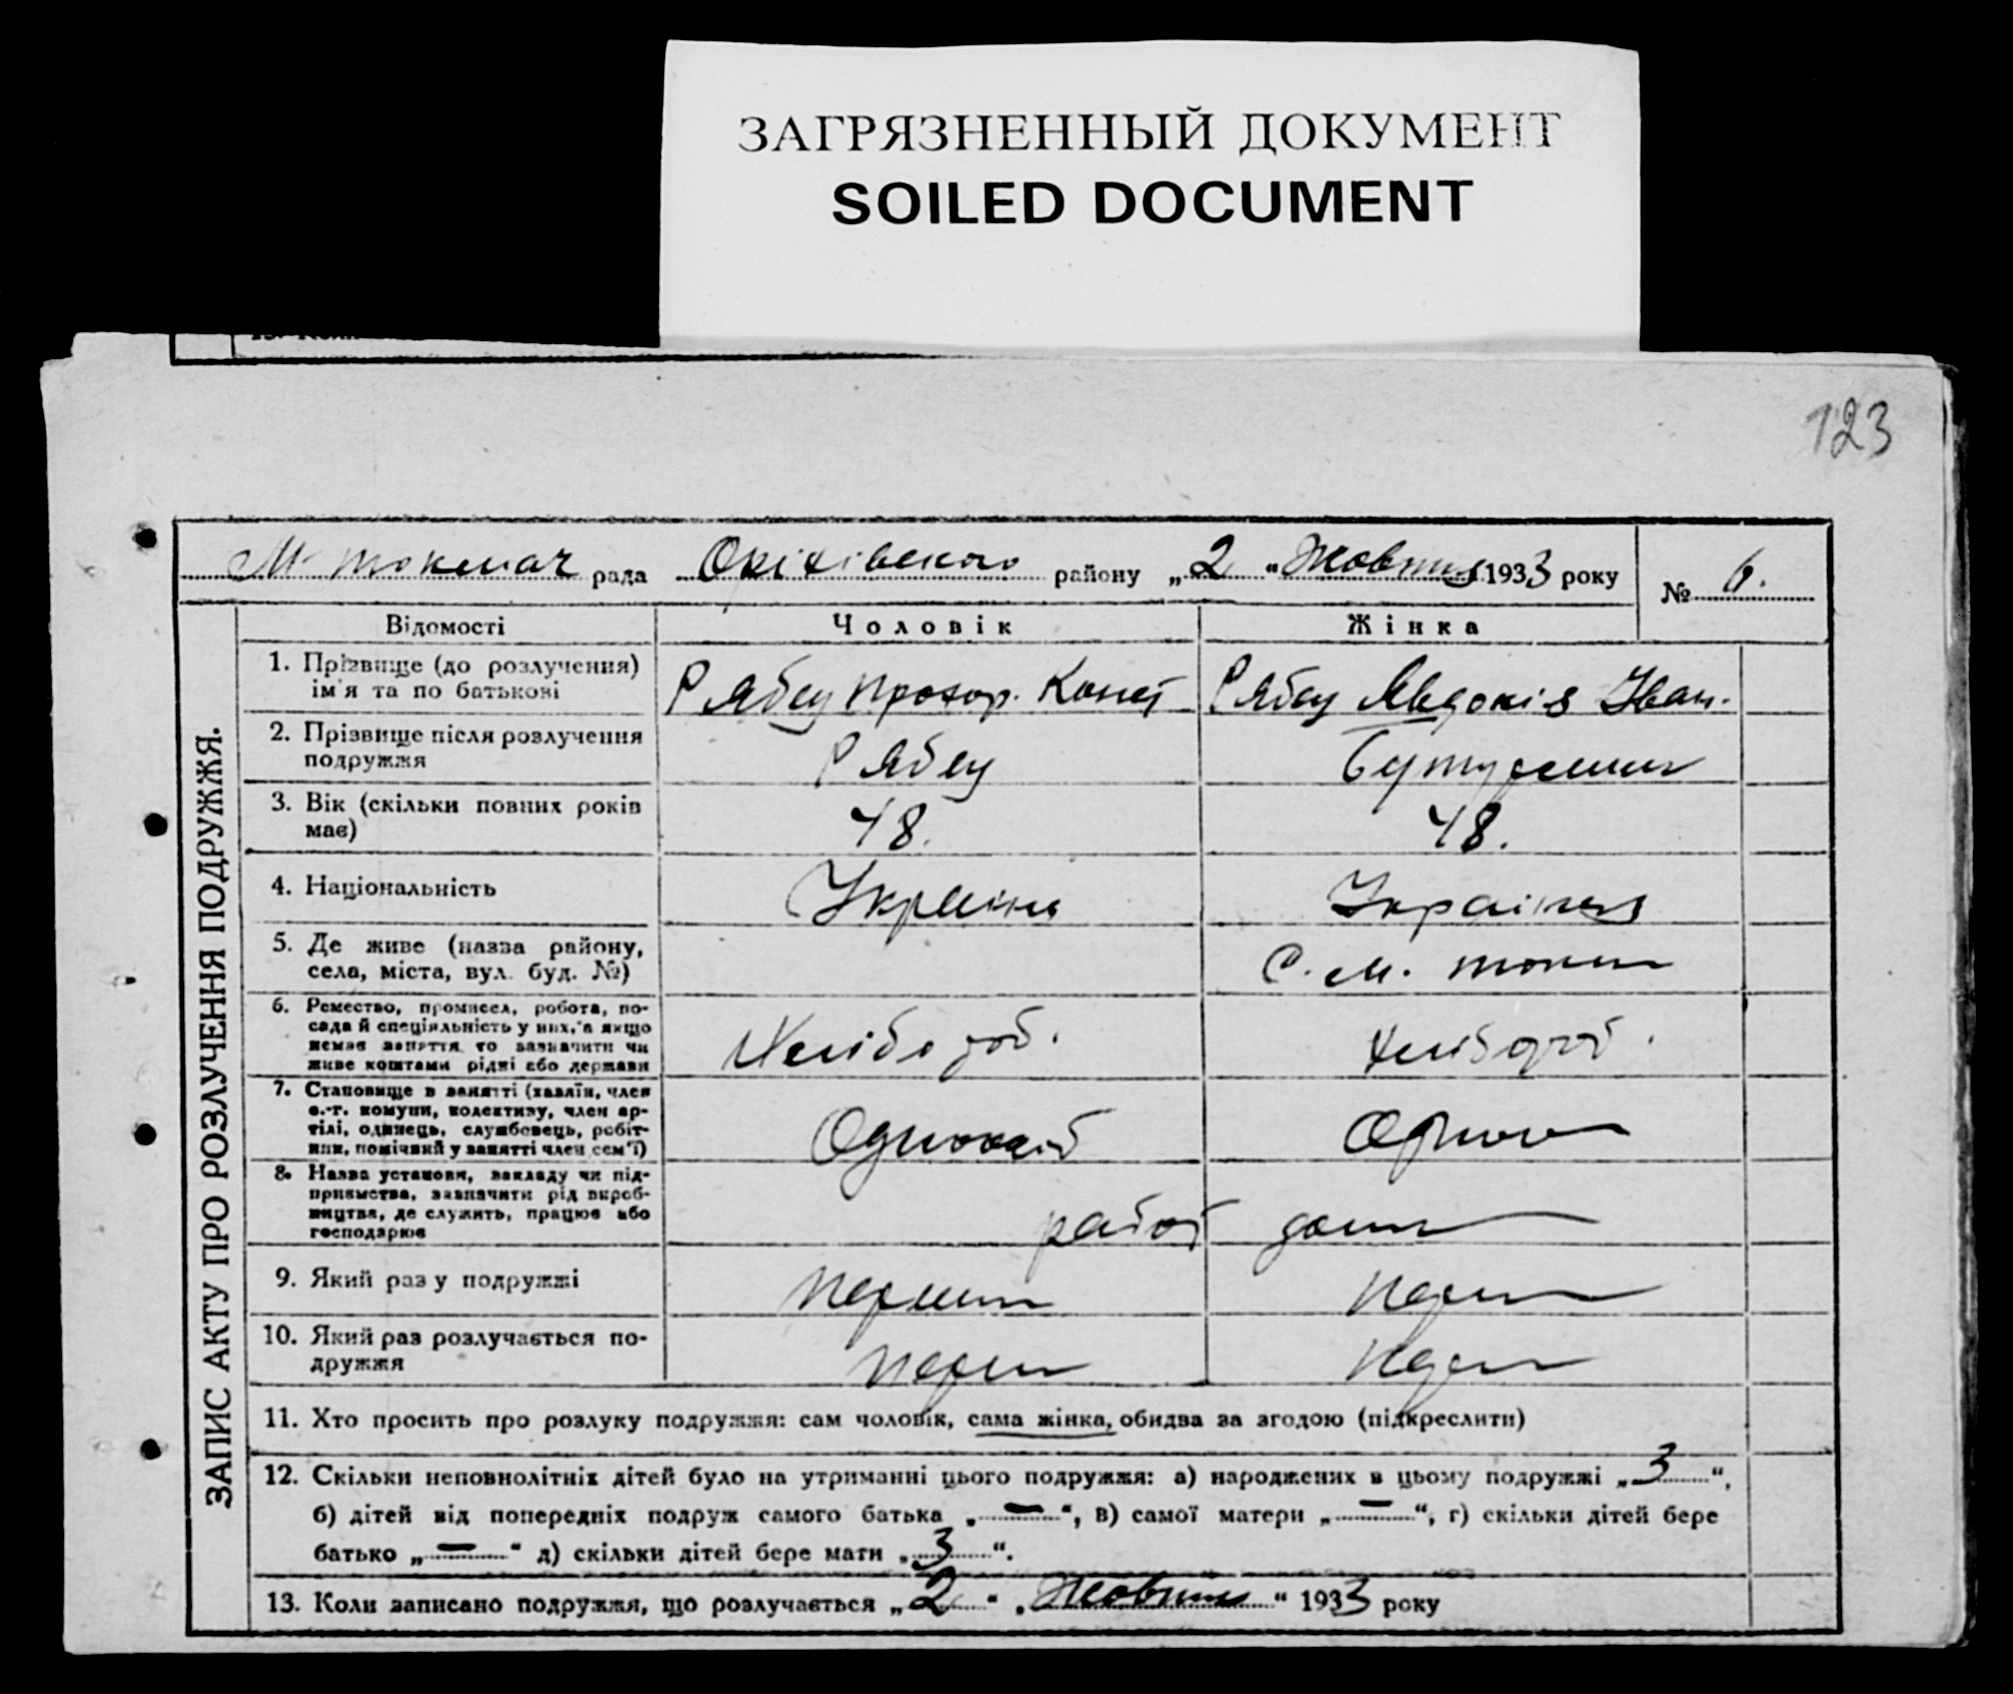 ЗАГРЯЗНЕННЫЙ ДОКУМЕНТ
SOILED DOCUMENT
123
М. Токмач рада Оріхівського району „2“ Жовтня 1933 року
№ 6.
ЗАПИС АКТУ ПРО РОЗЛУЧЕННЯ ПОДРУЖЖЯ.
Відомості Чоловік Жінка
1. Прізвище (до розлучення)
ім'я та по батькові
Рябец Прохор. Конст Рябец Явдокія Іван.
2. Прізвище після розлучення
подружжя
Рябец
3. Вік (скільки повних років
має)
48. 48.
4. Національність
Україн Українка
5. Де живе (назва району,
села, міста, вул. буд. №)
С. М. Токм
6. Ремество, промисел, робота, по-
сада й спеціяльність у них, а якщо
немає заняття то зазначити чи
живе коштами рідні або держави
Хлібороб. Хлібороб.
7. Становище в занятті (хазяїн, член
с.-г. комуни, колективу, член ар-
тілі, одинець, службовець, робіт-
ник, помічний у занятті член сем'ї)
8. Назва установи, закладу чи під-
приємства, зазначити рід вироб-
ництва, де служить, працює або
господарює
9. Який раз у подружжі
Перший Перш
10. Який раз розлучається по-
дружжя
Перш Перш
11. Хто просить про розлуку подружжя: сам чоловік, сама жінка, обидва за згодою (підкреслити)
12. Скільки неповнолітніх дітей було на утриманні цього подружжя: а) народжених в цьому подружжі „3“,
б) дітей від попередніх подруж самого батька „—“, в) самої матери „—“, г) скільки дітей бере
батько „—“ д) скільки дітей бере мати „3“.
13. Коли записано подружжя, що розлучається „2“ „Жовтня“ 1933 року